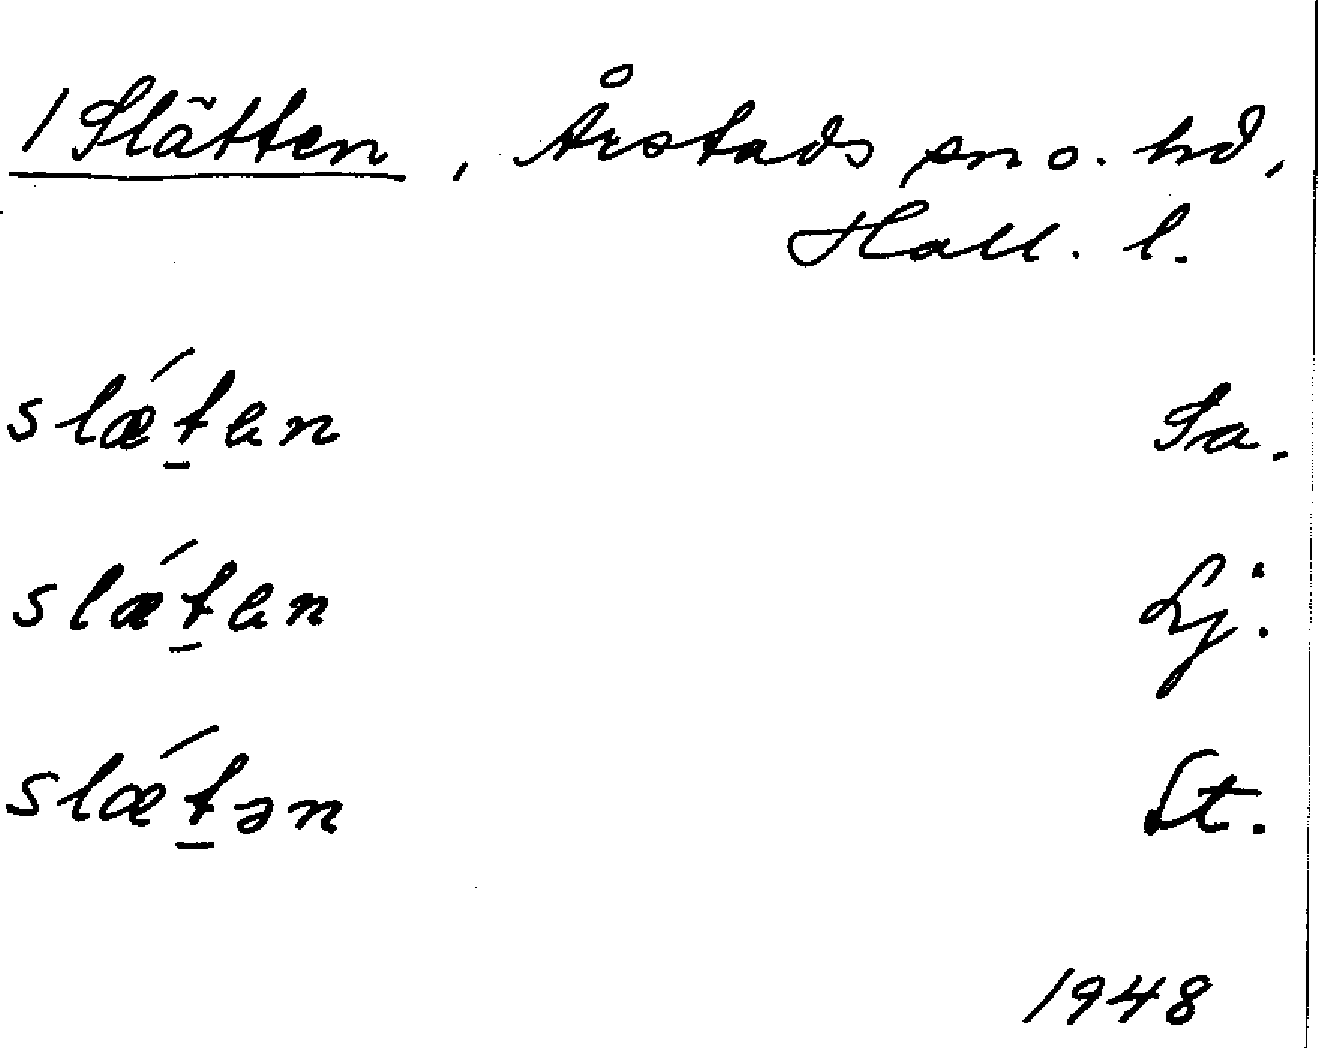 1 Slätten, Årstads sn o. hd,
Hall. l.
slǽt̠en Sa.
slǽt̠en Lj.
slǽt̠ən St.
1948